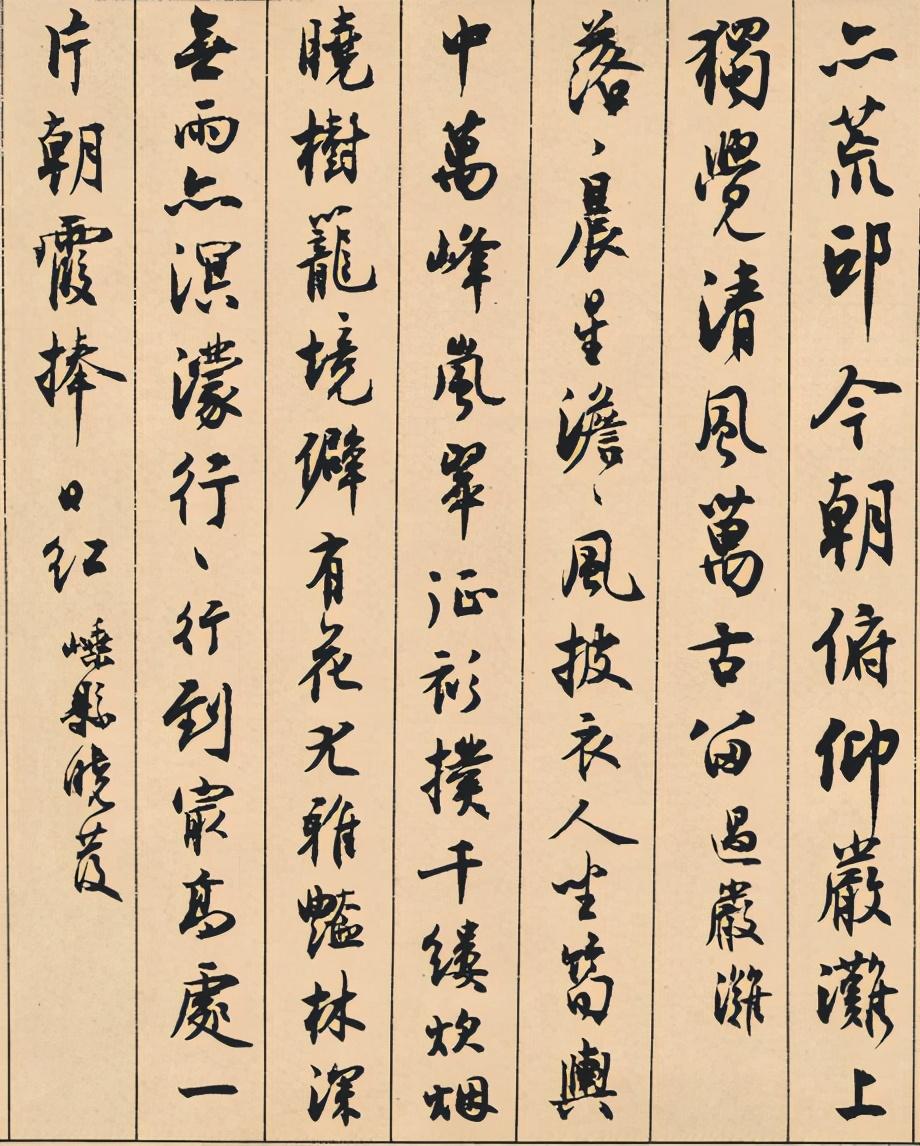 亦荒邱今朝俯仰嚴灘上
獨覺清風萬古留 過嚴灘
落々晨星澹々風披衣人坐筍輿
中萬峰嵐翠征衫撲千縷炊烟
曉樹籠境僻有花尤雅豔林深
無雨亦溟濛行々行到最高處一
片朝霞捧日紅 嵊縣曉發